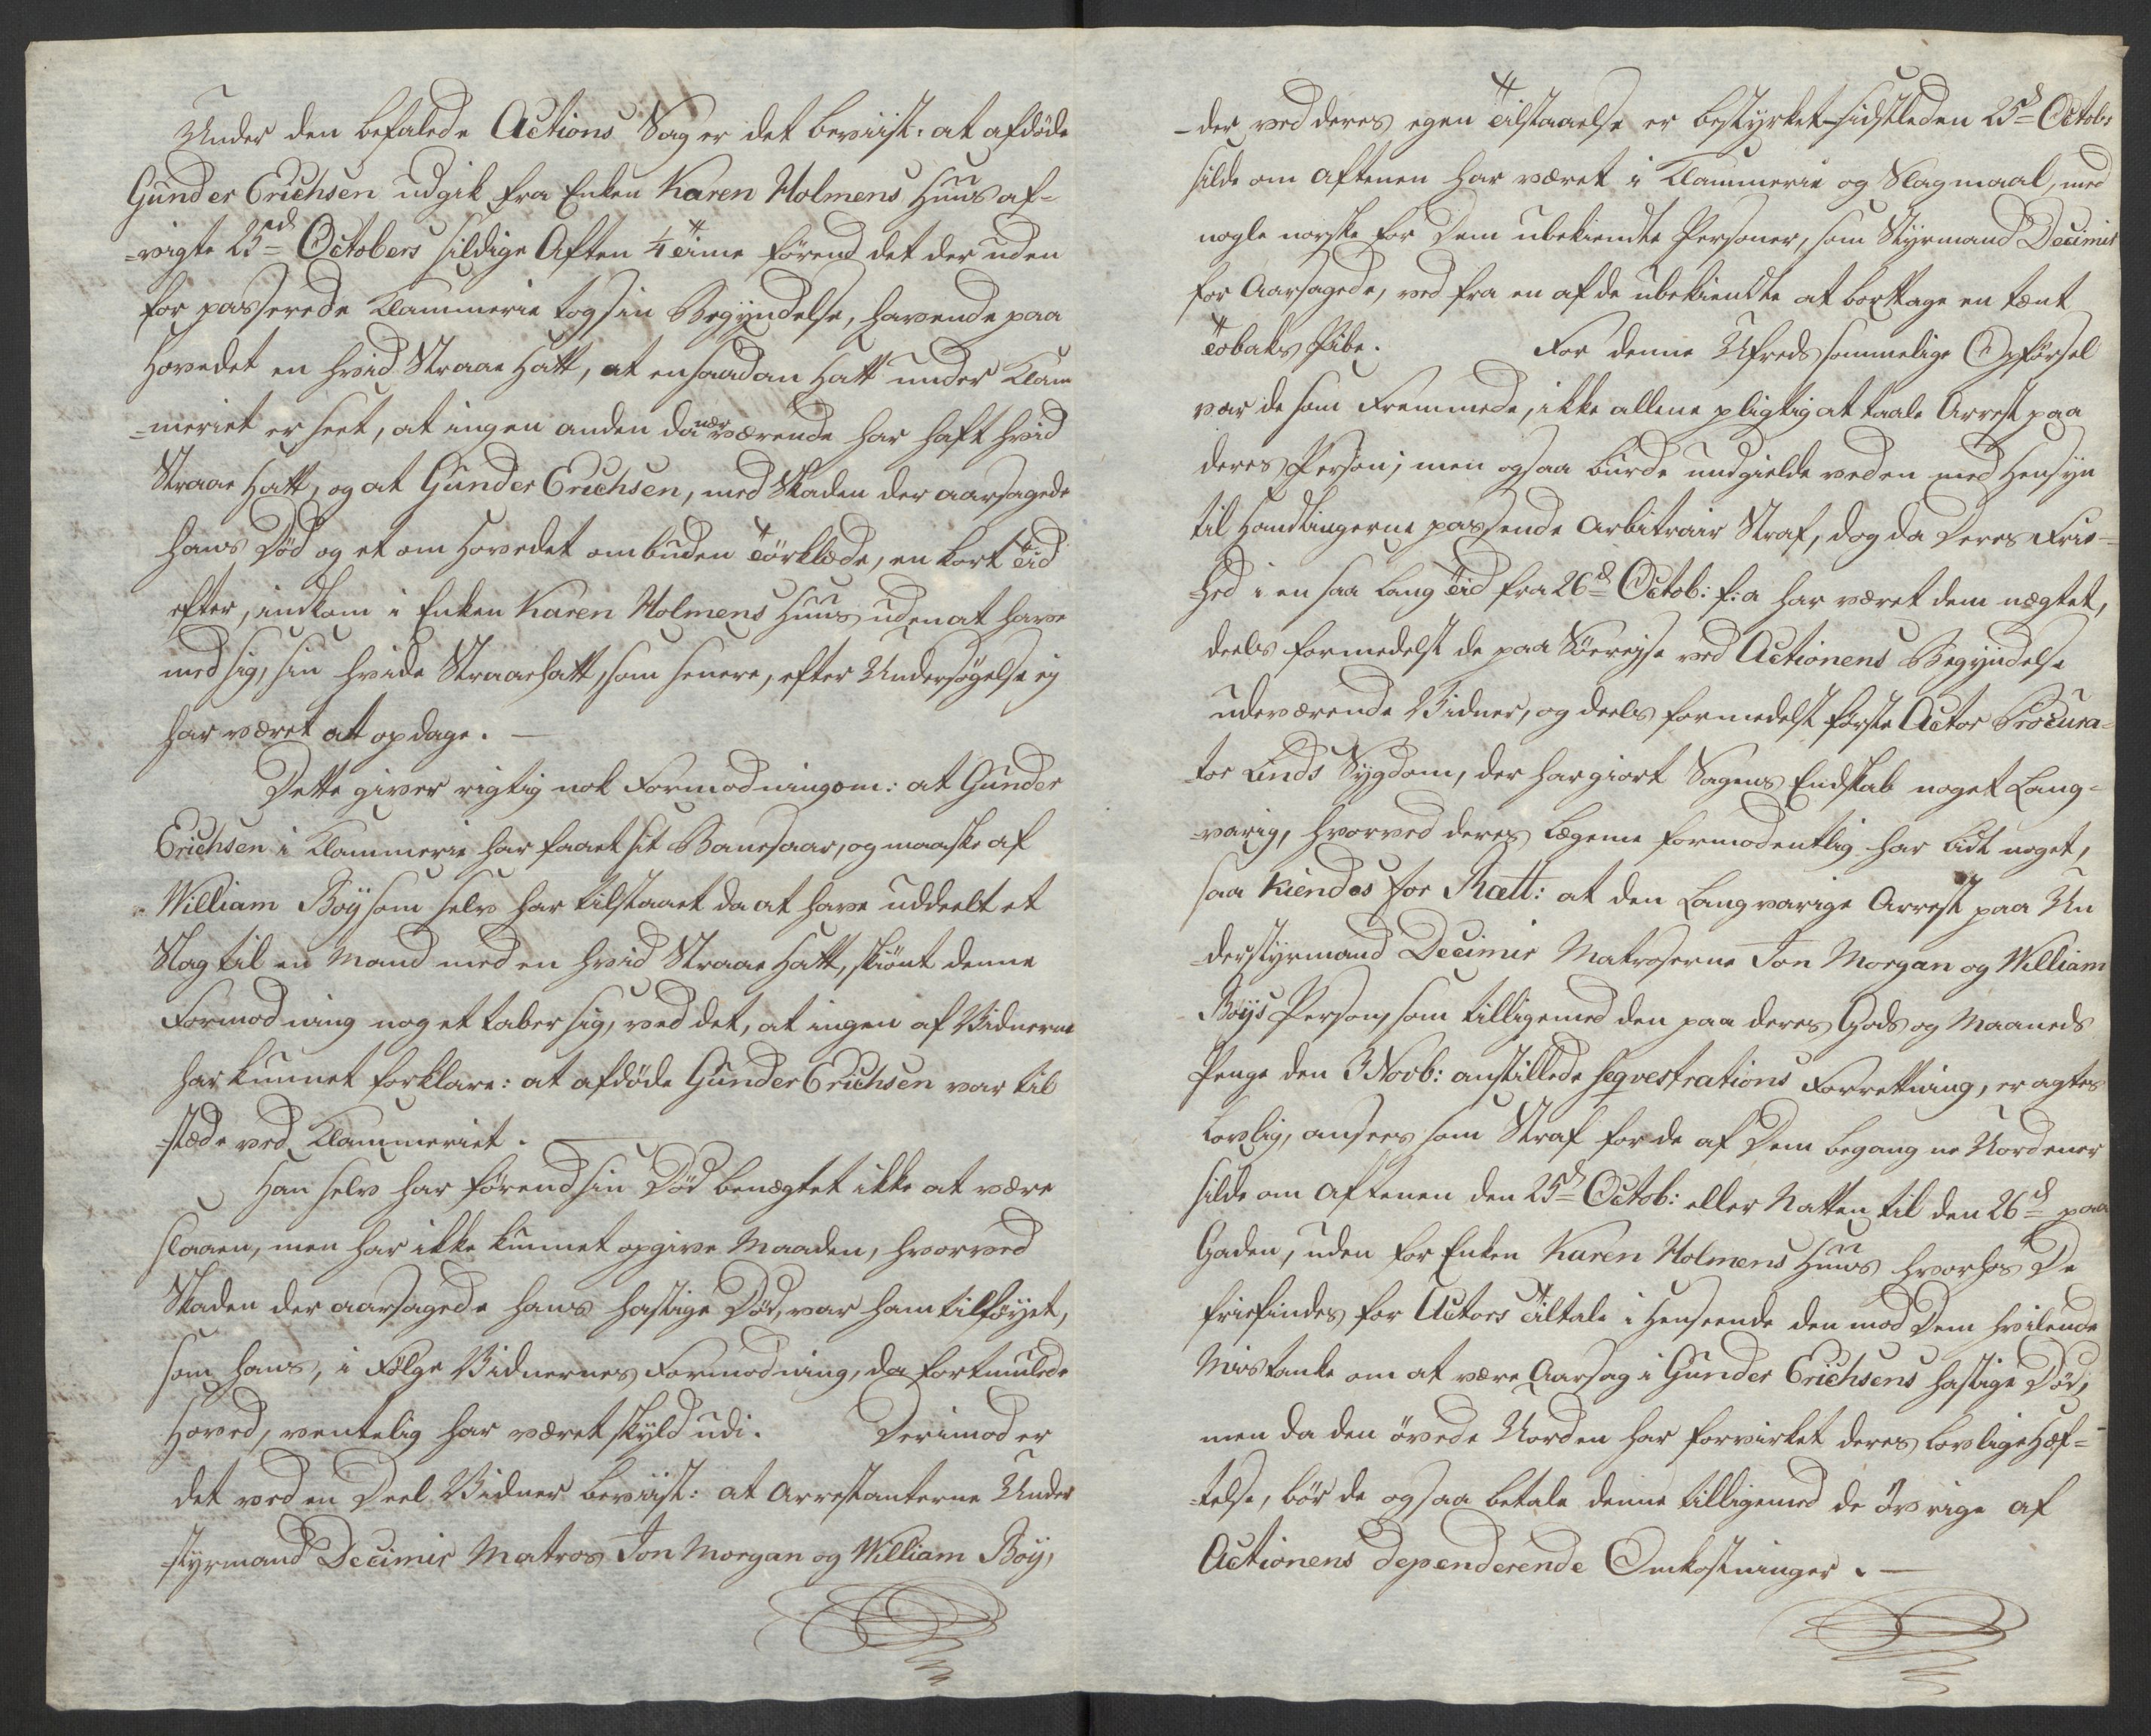 Under den befalede Actions Sag er det beviist: at afdöde
Gunder Erichsen udgik fra Enken Karen Holmens Huus af-
-vigte 25de Octobers sildige Aften 1/4 Time förend det der uden
for passerede Klammerie tog sin Begÿndelse, havende paa
Hovedet en hvid Straae Hatt, at en saadan Hatt under Klam
-meriet er seet, at ingen anden da nærværende har haft hvid
Straae Hatt, og at Gunder Erichsen, med Skaden der aarsagede
hans Död og et om Hovedet ombunden Törklæde, en kort Tid
efter, indkom i Enken Karen Holmens Huus uden at have
med sig, sin hvide Straaehatt, som senere, efter Undersögelse ej
har været at opdage. —
Dette giver rigtig nok Formodning om: at Gunder
Erichsen i Klammerie har faaet sit Banesaar, og maaske af
William Boÿ som selv har tilstaaet da at have uddeelt et
Slag til en Mand med en hvid Straae Hatt, skiönt denne
Formodning noget taber sig, ved det, at ingen af Vidnerne
har kunnet forklare: at afdöde Gunder Erichsen var til
-stæde ved Klammeriet. —
Han selv har förend sin Död benægtet ikke at være
slaaen, men har ikke kunnet opgive Maaden, hvorved
Skaden der aarsagede hans hastige Död, var ham tilföÿet,
som hans, i Fölge Vidnernes Formodning, da fortumlede
Hoved, ventelig har været skÿld udi. Derimod er
det ved en Deel Vidner beviist: at Arrestanterne Under
-stÿrmand Decimir Matros Jon Morgan og William Boÿ,
-der ved deres egen Tilstaaelse er bestÿrket - sidstleden 25d Octobr
silde om Aftenen har været i Klammerie og Slagmaal, med
nogle norske for Dem ubekiendte Personer, som Stÿrmand Decimir
for Aarsagede, ved fra en af de ubekiendte at borttage en tænt
Tobaks Pibe. For denne Ufredsommelige Opförsel
var de som Fremmede, ikke allene pligtig at taale Arrest paa
deres Person; men ogsaa burde undgielde ved en med Hensÿn
til Handlingerne passende Arbitrair Straf, dog da Deres Frie-
-hed i en saa lang Tid fra 26d Octob: f: a har været dem nægtet,
deels formedelst de paa Söereise ved Actionens Begÿndelse
udeværende Vidner, og deels formedelst förste Actor Procura-
-tor Linds Sÿgdom, der har giort Sagens Endskab noget Lang-
-varig, hvorved deres Legeme formodentlig har lidt noget,
saa Kiendes for Rætt: at den Langvarige Arrest paa Un
-derstÿrmand Decimir Matroserne Jon Morgan og William
Boÿs Person, som tilligemed den paa deres Gods og Maaneds
Penge den 3 Novb: anstillede Seqvestrations Forrettning, er agtes
Lovlig, ansees som Straf for de af Dem begangne Uordener
silde om Aftenen den 25d Octob: eller Natten til den 26d paa
Gaden, uden for Enken Karen Holmens Huus hvorhos De
friefindes for Actors Tiltale i Henseende den mod Dem hvilende
Mistanke om at være Aarsag i Gunder Erichsens hastige Död,
men da den övede Uorden har forvirket deres Lovlige Hæf-
-telse, bör de ogsaa betale denne tilligemed de övrige af
Actionens dependerende Omkostninger. —